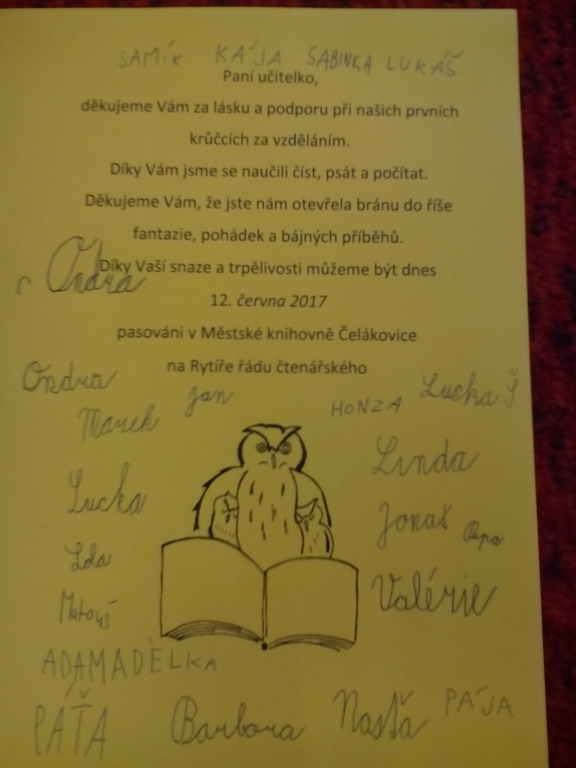 SAMÍK KÁJA SABINKA LUKÁŠ
Paní učitelko,
děkujeme Vám za lásku a podporu při našich prvních
krůčcích za vzděláním.
Díky Vám jsme se naučili číst, psát a počítat.
Děkujeme Vám, že jste nám otevřela bránu do říše
fantazie, pohádek a bájných příběhů.
Díky Vaší snaze a trpělivosti můžeme být dnes
Ondra
12. června 2017
pasováni v Městské knihovně Čelákovice
na Rytíře řádu čtenářského
Ondra
Jan
HONZA
Lucka Š.
Marek
Linda
Lucka
Jonáš
Pepa
Lola
Valérie
Matouš
ADAM ADÉLKA
PÁŤA
Barbora
Nasťa
PÁJA